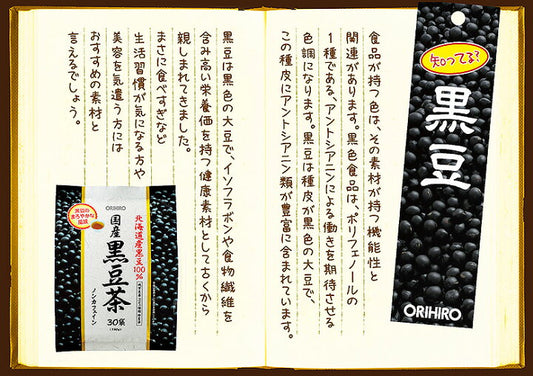 知ってる?
黒豆
ORIHIRO
食品が持つ色は、その素材が持つ機能性と
関連があります。黒色食品は、ポリフェノールの
1種である、アントシアニンによる働きを期待させる
色調になります。黒豆は種皮が黒色の大豆で、
この種皮にアントシアニン類が豊富に含まれています。
黒豆は黒色の大豆で、イソフラボンや食物繊維を
含み高い栄養価を持つ健康素材として古くから
親しまれてきました。
まさに食べすぎなど
生活習慣が気になる方や
美容を気遣う方には
おすすめの素材と
言えるでしょう。
ORIHIRO
北海道産黒豆100%
国産
黒豆茶
ノンカフェイン
30袋